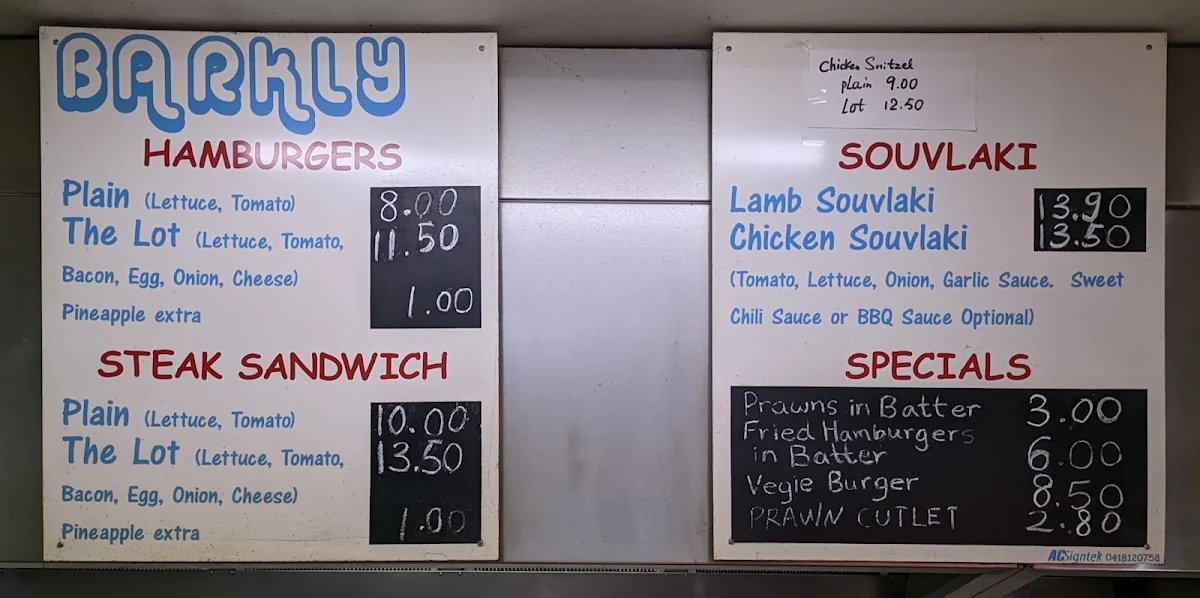 BARKLY
HAMBURGERS
Plain (Lettuce, Tomato) 8.00
The Lot (Lettuce, Tomato, 11.50
Bacon, Egg, Onion, Cheese)
Pineapple extra 1.00
STEAK SANDWICH
Plain (Lettuce, Tomato) 10.00
The Lot (Lettuce, Tomato, 13.50
Bacon, Egg, Onion, Cheese)
Pineapple extra 1.00
Chicken Snitzel
plain 9.00
Lot 12.50
SOUVLAKI
Lamb Souvlaki 13.90
Chicken Souvlaki 13.50
(Tomato, Lettuce, Onion, Garlic Sauce. Sweet
Chili Sauce or BBQ Sauce Optional)
SPECIALS
Prawns in Batter 3.00
Fried Hamburgers
in Batter 6.00
Vegie Burger 8.50
PRAWN CUTLET 2.80
ACSigntek 0418120758